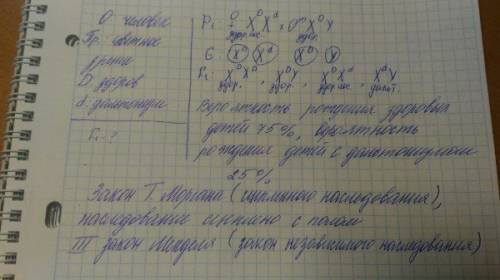 О: человек
Пр.: цветное
зрение
D: здоров
d: дальтонизм
F₁ - ?
P: ♀ X^D X^d × ♂ X^D Y
здор. нос. здор.
G: X^D X^d X^D Y
F₁: X^D X^D, X^D Y, X^D X^d, X^d Y
здор. здор. здор. нос. дальт.
Вероятность рождения здоровых
детей 75%, вероятность
рождения детей с дальтонизмом
25%
Закон Т. Моргана (сцепленного наследования),
наследование сцеплено с полом
III закон Менделя (закон независимого наследования)